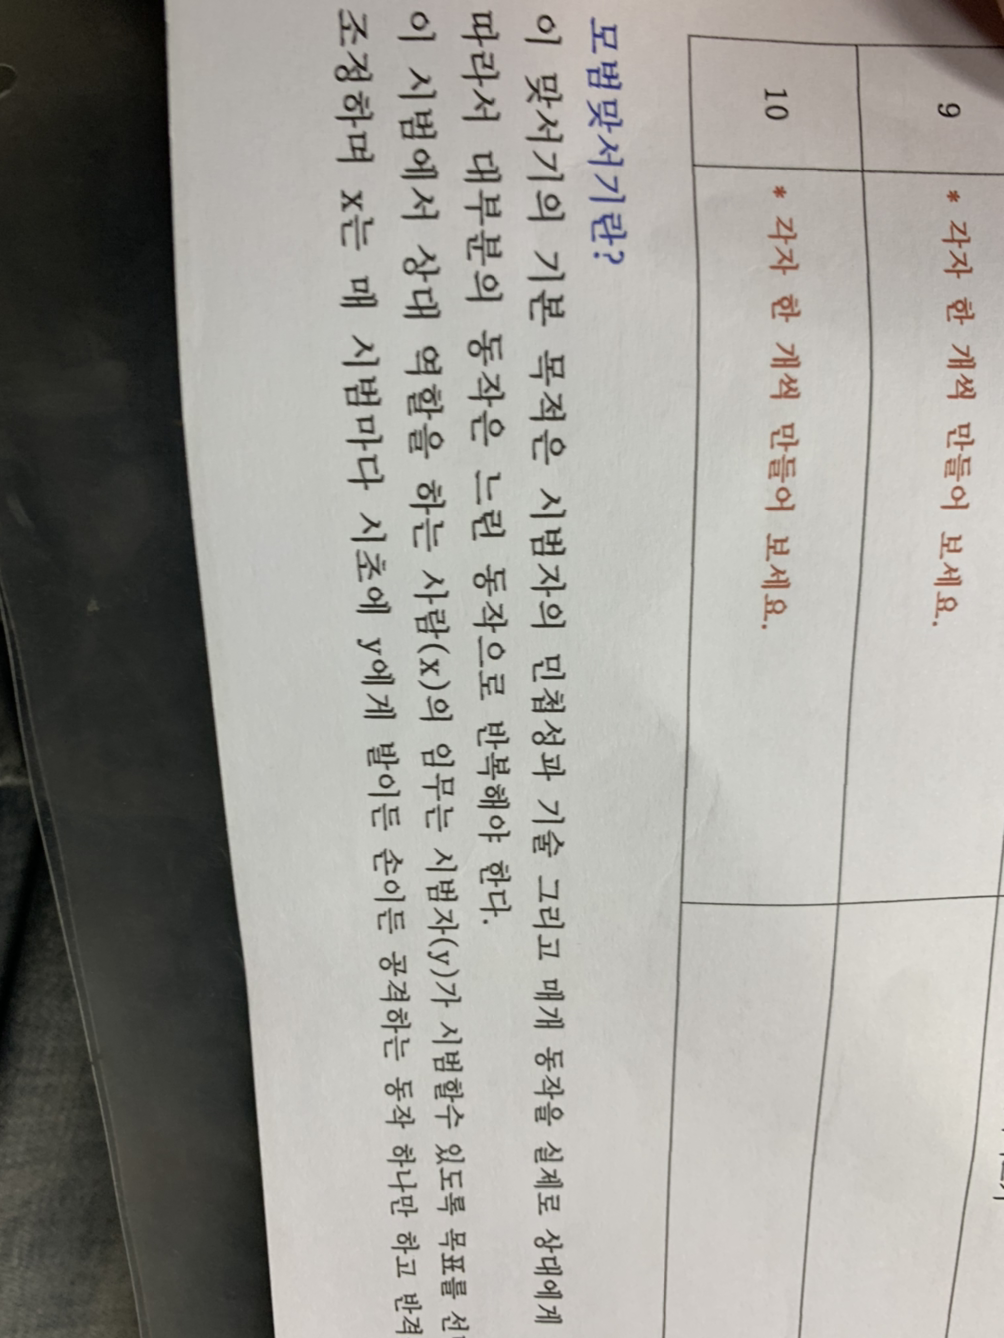 9
* 각자 한 개씩 만들어 보세요.
10
* 각자 한 개씩 만들어 보세요.
모범맞서기란?
이 맞서기의 기본 목적은 시범자의 민첩성과 기술 그리고 매개 동작을 실제로 상대에게
따라서 대부분의 동작은 느린 동작으로 반복해야 한다.
이 시범에서 상대 역할을 하는 사람(x)의 임무는 시범자(y)가 시범할수 있도록 목표를
조정하며 x는 매 시범마다 시초에 y에게 발이든 손이든 공격하는 동작 하나만 하고 반격